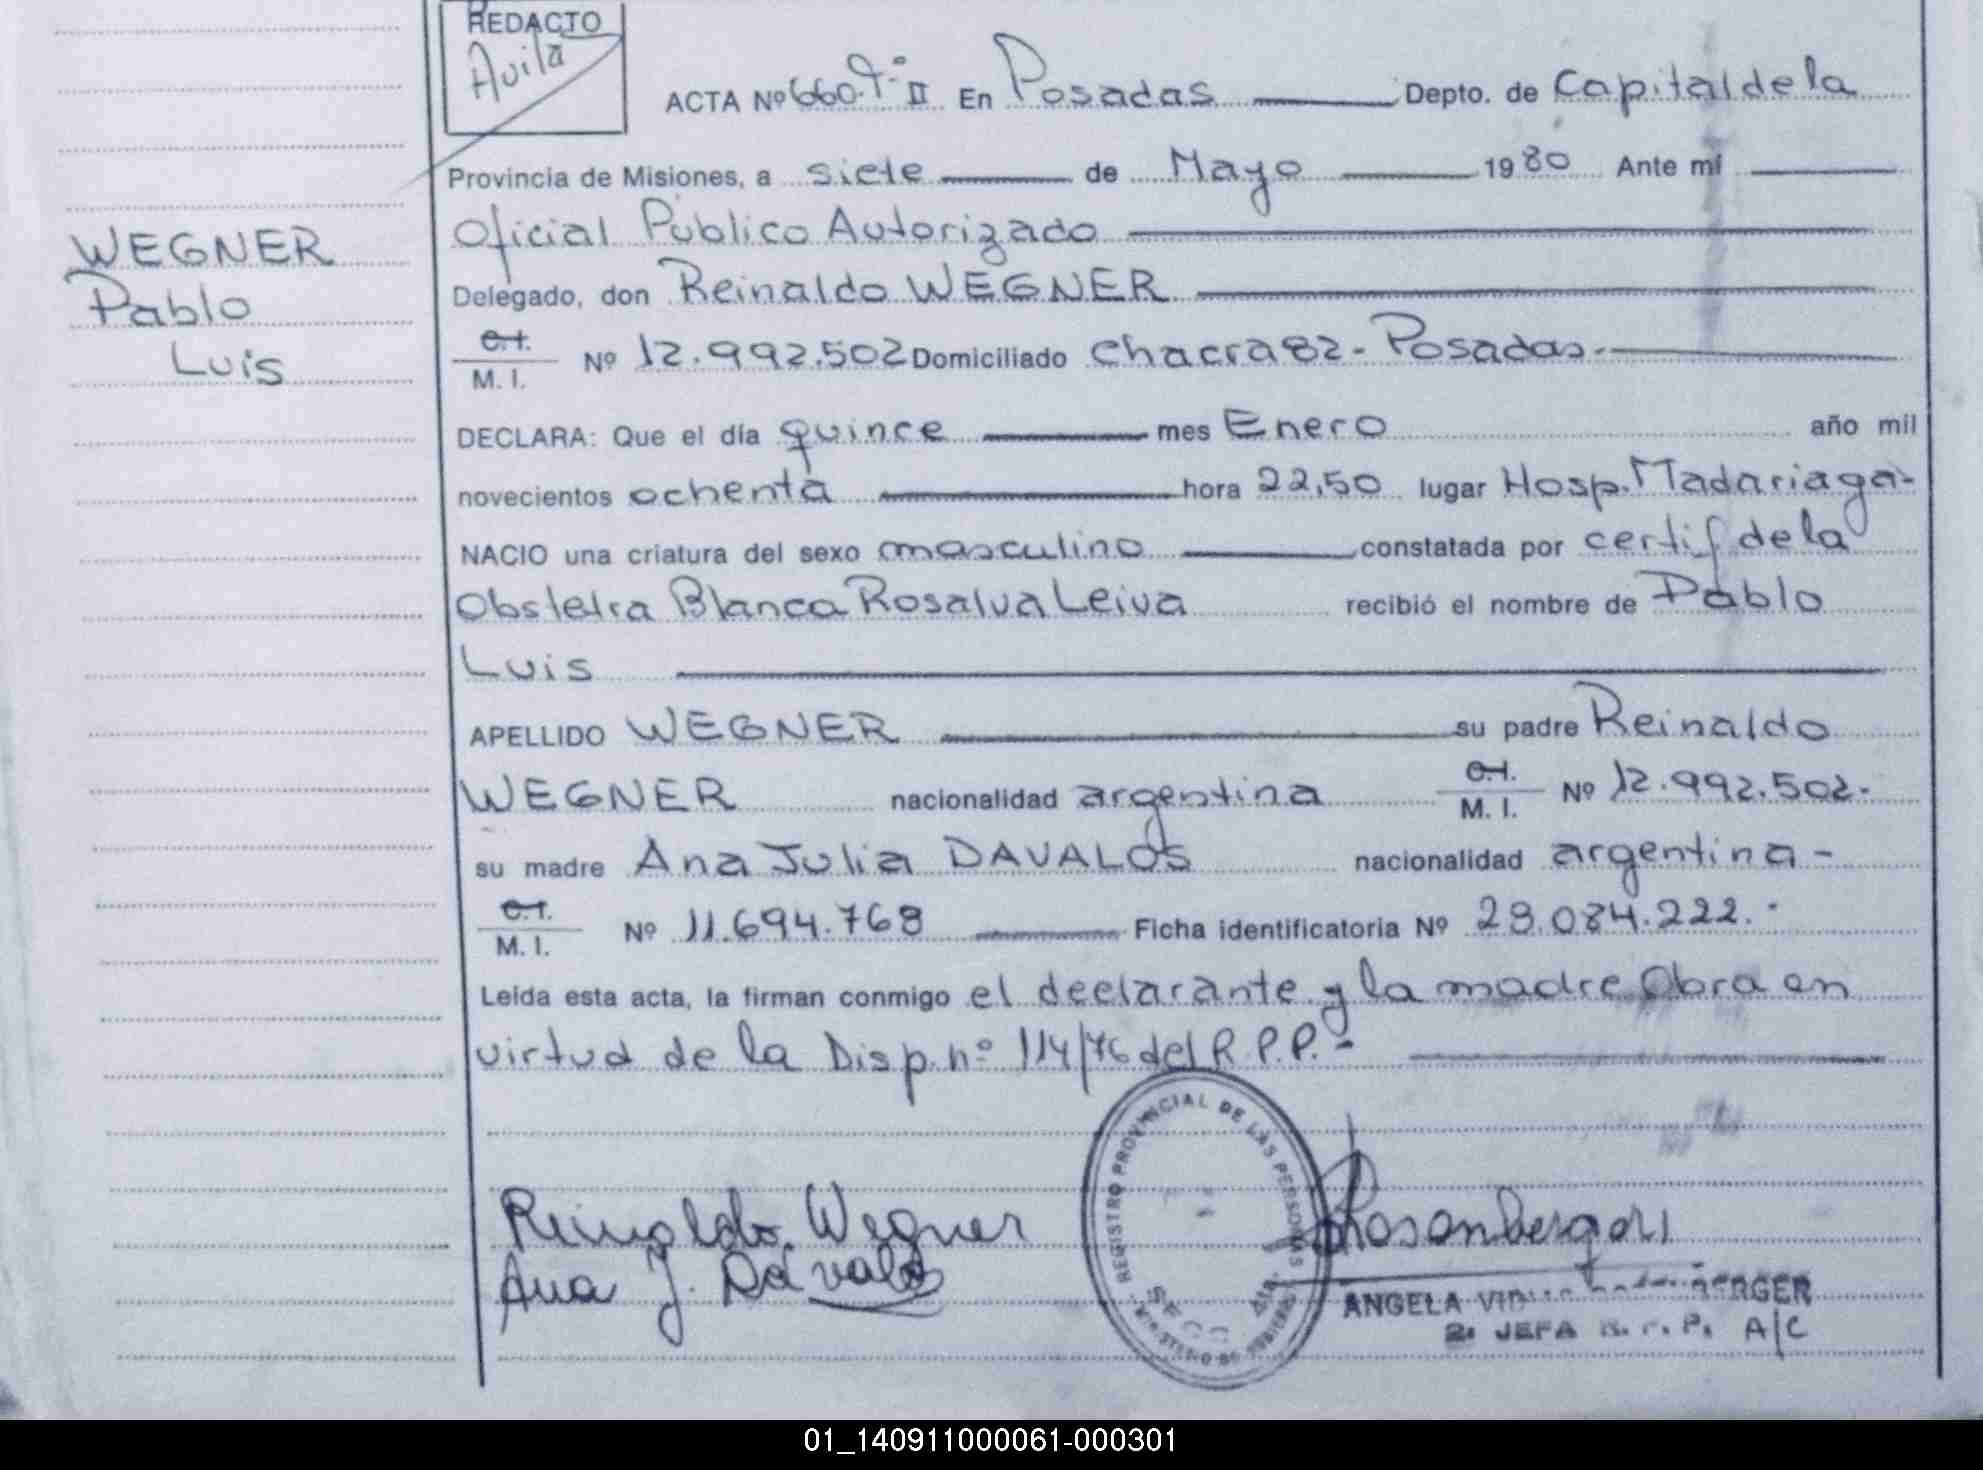 REDACTO
Avila
ACTA Nº 660. Tº II En Posadas Depto. de Capital de la
Provincia de Misiones, a siete de Mayo 1980 Ante mí
Oficial Público Autorizado
WEGNER
Delegado, don Reinaldo WEGNER
Pablo
C.I. / M. I. Nº 12.992.502 Domiciliado Chacra 82 - Posadas.-
Luis
DECLARA: Que el día quince mes Enero año mil
novecientos ochenta hora 22,50 lugar Hosp. Madariaga-
NACIO una criatura del sexo masculino constatada por certif de la
Obstetra Blanca Rosalva Leiva recibió el nombre de Pablo
Luis
APELLIDO WEGNER su padre Reinaldo
WEGNER nacionalidad argentina C.I. / M. I. Nº 12.992.502.
su madre Ana Julia DAVALOS nacionalidad argentina -
C.I. / M. I. Nº 11.694.768 Ficha identificatoria Nº 28.084.222.-
Leída esta acta, la firman conmigo el declarante y la madre Obra en
virtud de la Disp. nº 114/76 del R.P.P.-
REGISTRO PROVINCIAL DE LAS PERSONAS
SECC.
MINISTERIO DE GOBIERNO
Reinaldo Wegner
Ana J. Dávalos
ANGELA
2ª JEFA R.P.P. A/C
01_140911000061-000301